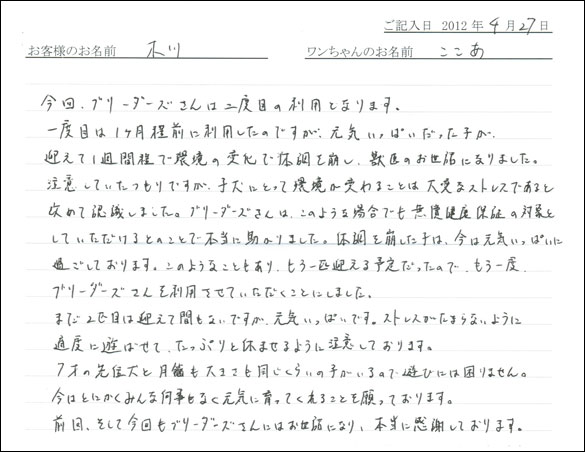 ご記入日 2012年4月27日
お客様のお名前 木川 ワンちゃんのお名前 ここあ
今回、ブリーダーズさんは二度目の利用となります。
一度目は1ヶ月程前に利用したのですが、元気いっぱいだった子が、
迎えて1週間程で環境の変化で体調を崩し、獣医のお世話になりました。
注意していたつもりですが、子犬にとって環境が変わることは大変なストレスであると
改めて認識しました。ブリーダーズさんは、このような場合でも無償健康保証の対象と
していただけるとのことで本当に助かりました。体調を崩した子は、今は元気いっぱいに
過ごしております。このようなこともあり、もう一匹迎える予定だったので、もう一度、
ブリーダーズさんを利用させていただくことにしました。
まだ2匹目は迎えて間もないですが、元気いっぱいです。ストレスがたまらないように
適度に遊ばせて、たっぷりと休ませるように注意しております。
7才の先住犬と月齢も大きさも同じくらいの子がいるので遊びには困りません。
今はとにかくみんな何事もなく元気に育ってくれることを願っております。
前回、そして今回もブリーダーズさんにはお世話になり、本当に感謝しております。